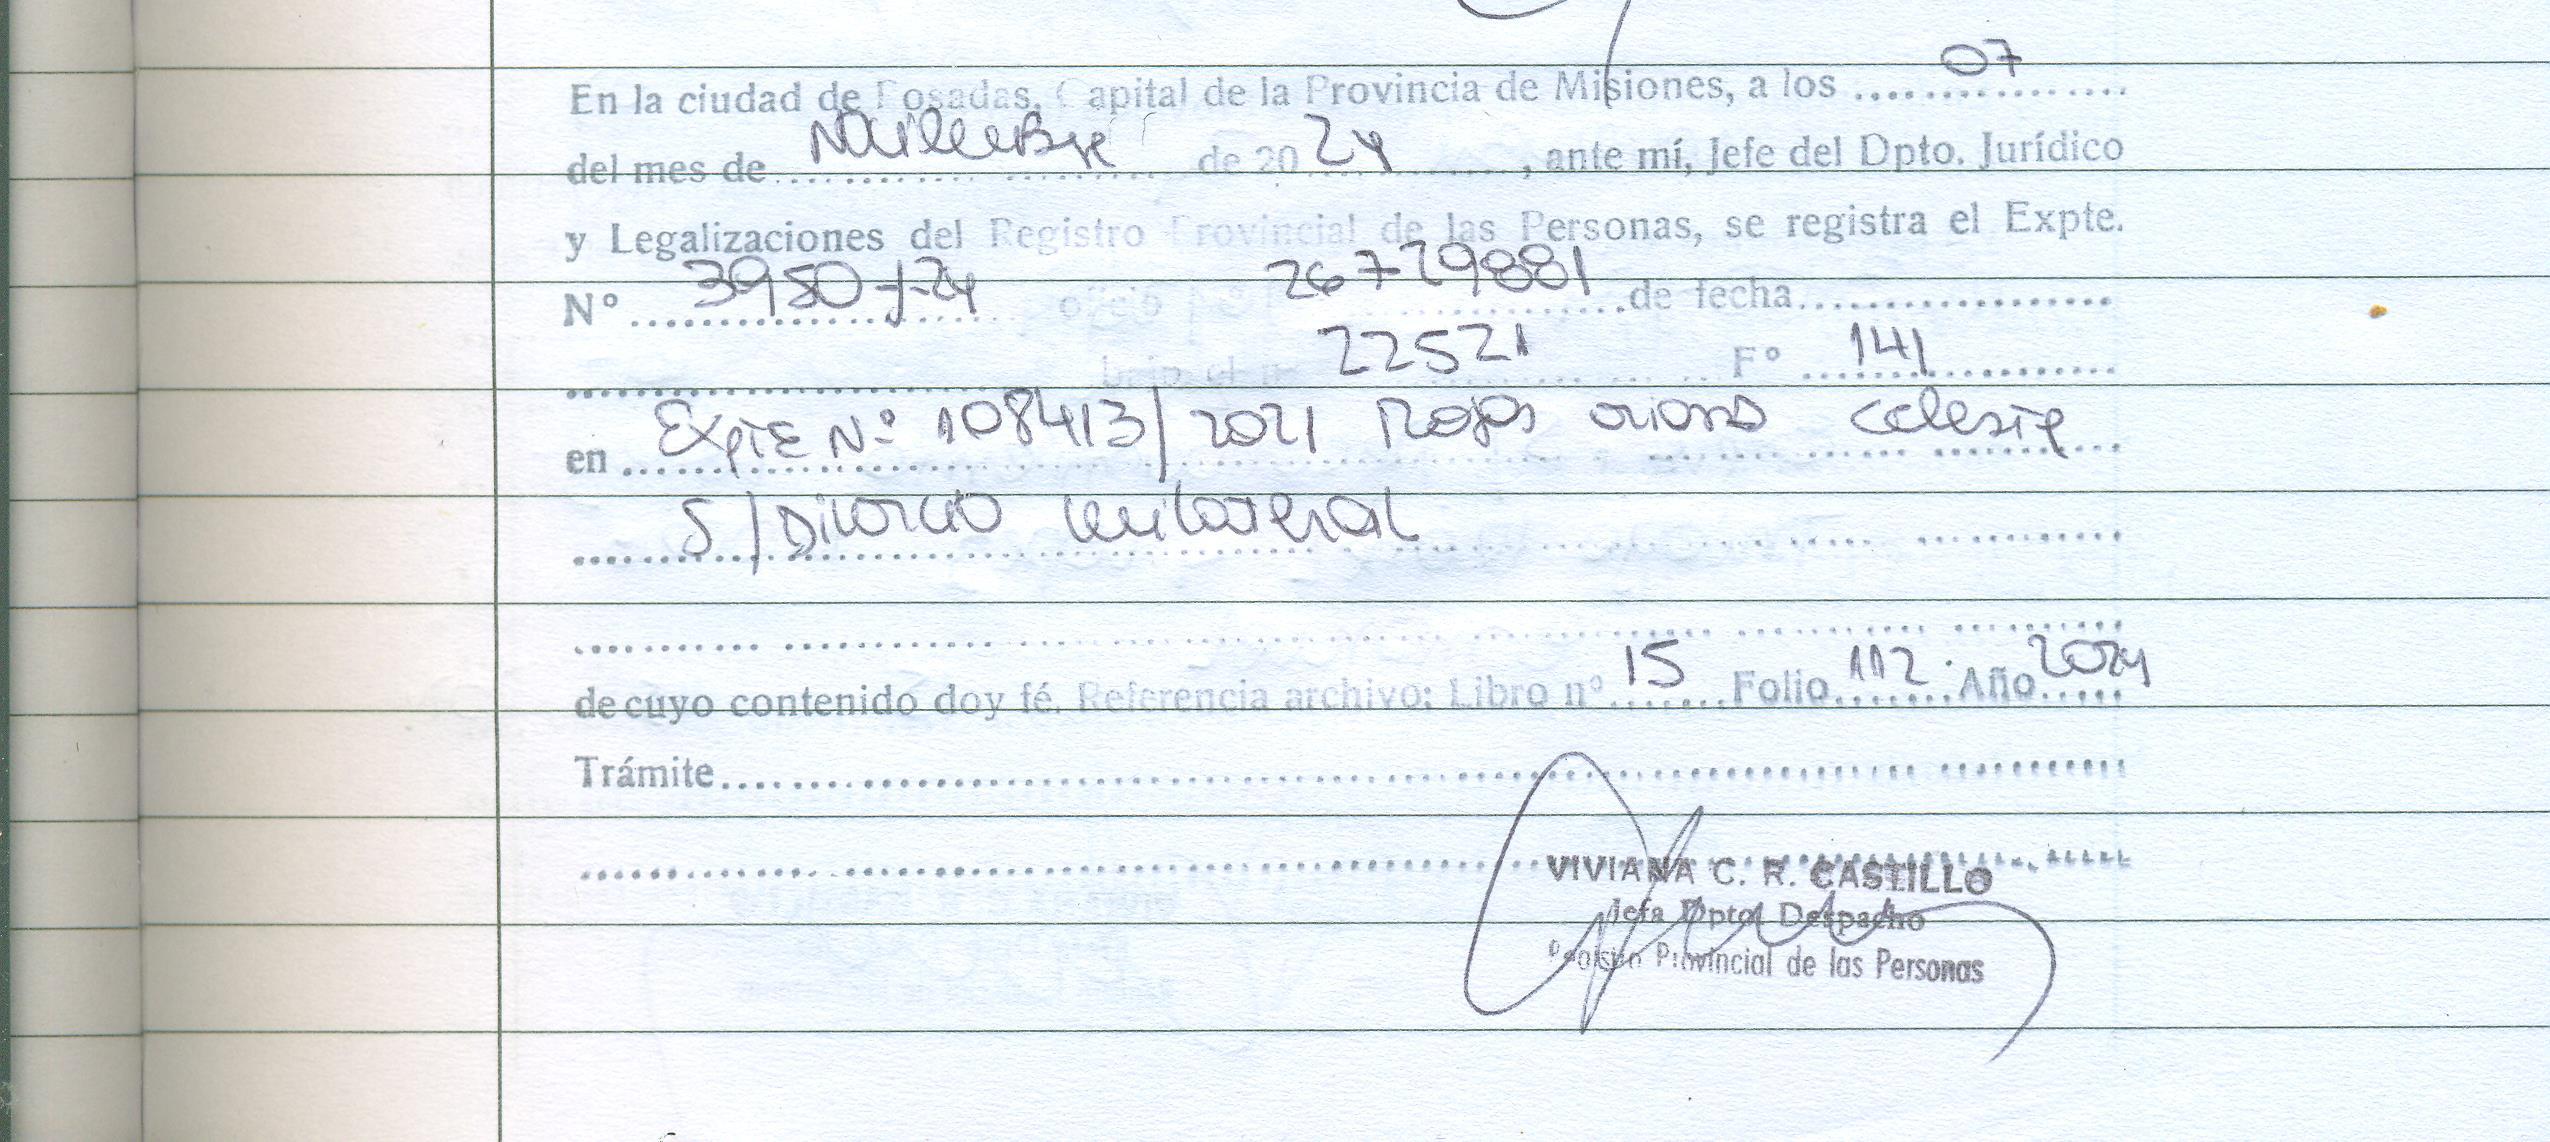 En la ciudad de Posadas, Capital de la Provincia de Misiones, a los 07
del mes de Noviembre de 20 24, ante mí, Jefe del Dpto. Jurídico
y Legalizaciones del Registro Provincial de las Personas, se registra el Expte.
Nº 3950-J-24 26729881 de fecha
22521 Fº 141
en Expte Nº 108413/2021 Rojas Celeste
S/Divorcio unilateral
de cuyo contenido doy fé. Referencia archivo: Libro nº 15 Folio 112 Año 2024
Trámite
VIVIANA C. R. CASTILLO
Jefa Dpto. Despacho
Registro Provincial de las Personas